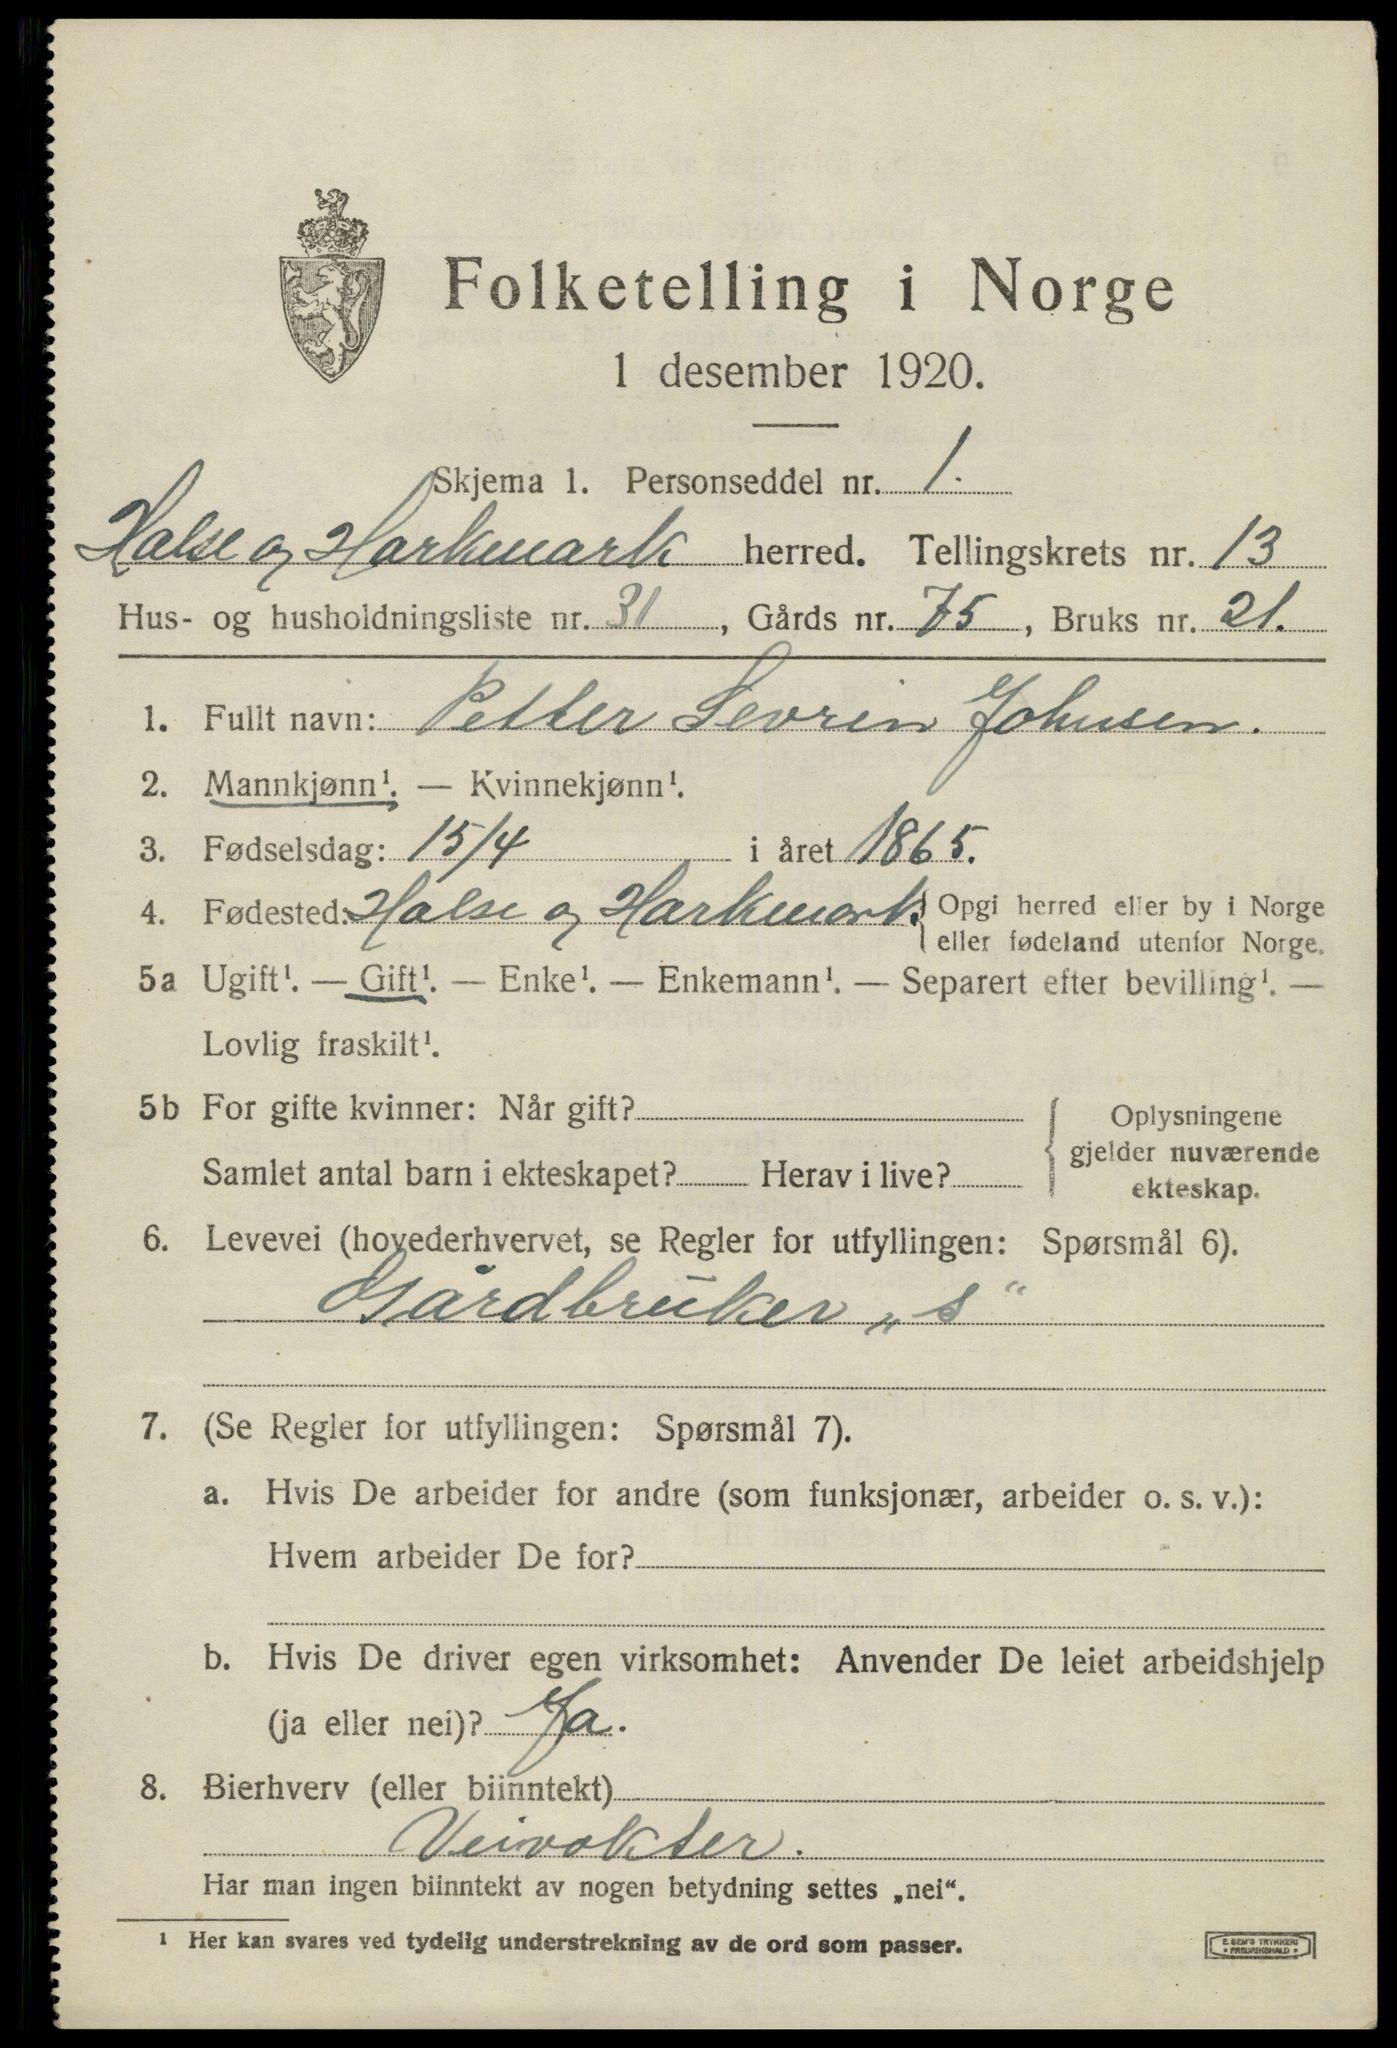 Folketelling i Norge
1 desember 1920.
Skjema 1. Personseddel nr. 1.
Halse og Harkmark herred. Tellingskrets nr. 13
Hus- og husholdningsliste nr. 31, Gårds nr. 75, Bruks nr. 21.
1. Fullt navn: Petter Sevrin Johnsen.
2. Mannkjønn¹. — Kvinnekjønn¹.
3. Fødselsdag: 15/4 i året 1865.
4. Fødested: Halse og Harkmark { Opgi herred eller by i Norge
eller fødeland utenfor Norge.
5a Ugift¹. — Gift¹. — Enke¹. — Enkemann¹. — Separert efter bevilling¹. —
Lovlig fraskilt¹.
5b For gifte kvinner: Når gift?
Samlet antal barn i ekteskapet? Herav i live?
{ Oplysningene
gjelder nuværende
ekteskap.
6. Levevei (hovederhvervet, se Regler for utfyllingen: Spørsmål 6).
Gårdbruker „s“
7. (Se Regler for utfyllingen: Spørsmål 7).
a. Hvis De arbeider for andre (som funksjonær, arbeider o. s. v.):
Hvem arbeider De for?
b. Hvis De driver egen virksomhet: Anvender De leiet arbeidshjelp
(ja eller nei)? Ja.
8. Bierhverv (eller biinntekt)
Veivokter.
Har man ingen biinntekt av nogen betydning settes „nei“.
¹ Her kan svares ved tydelig understrekning av de ord som passer.
E. SEM'S TRYKKERI
FREDRIKSHALD